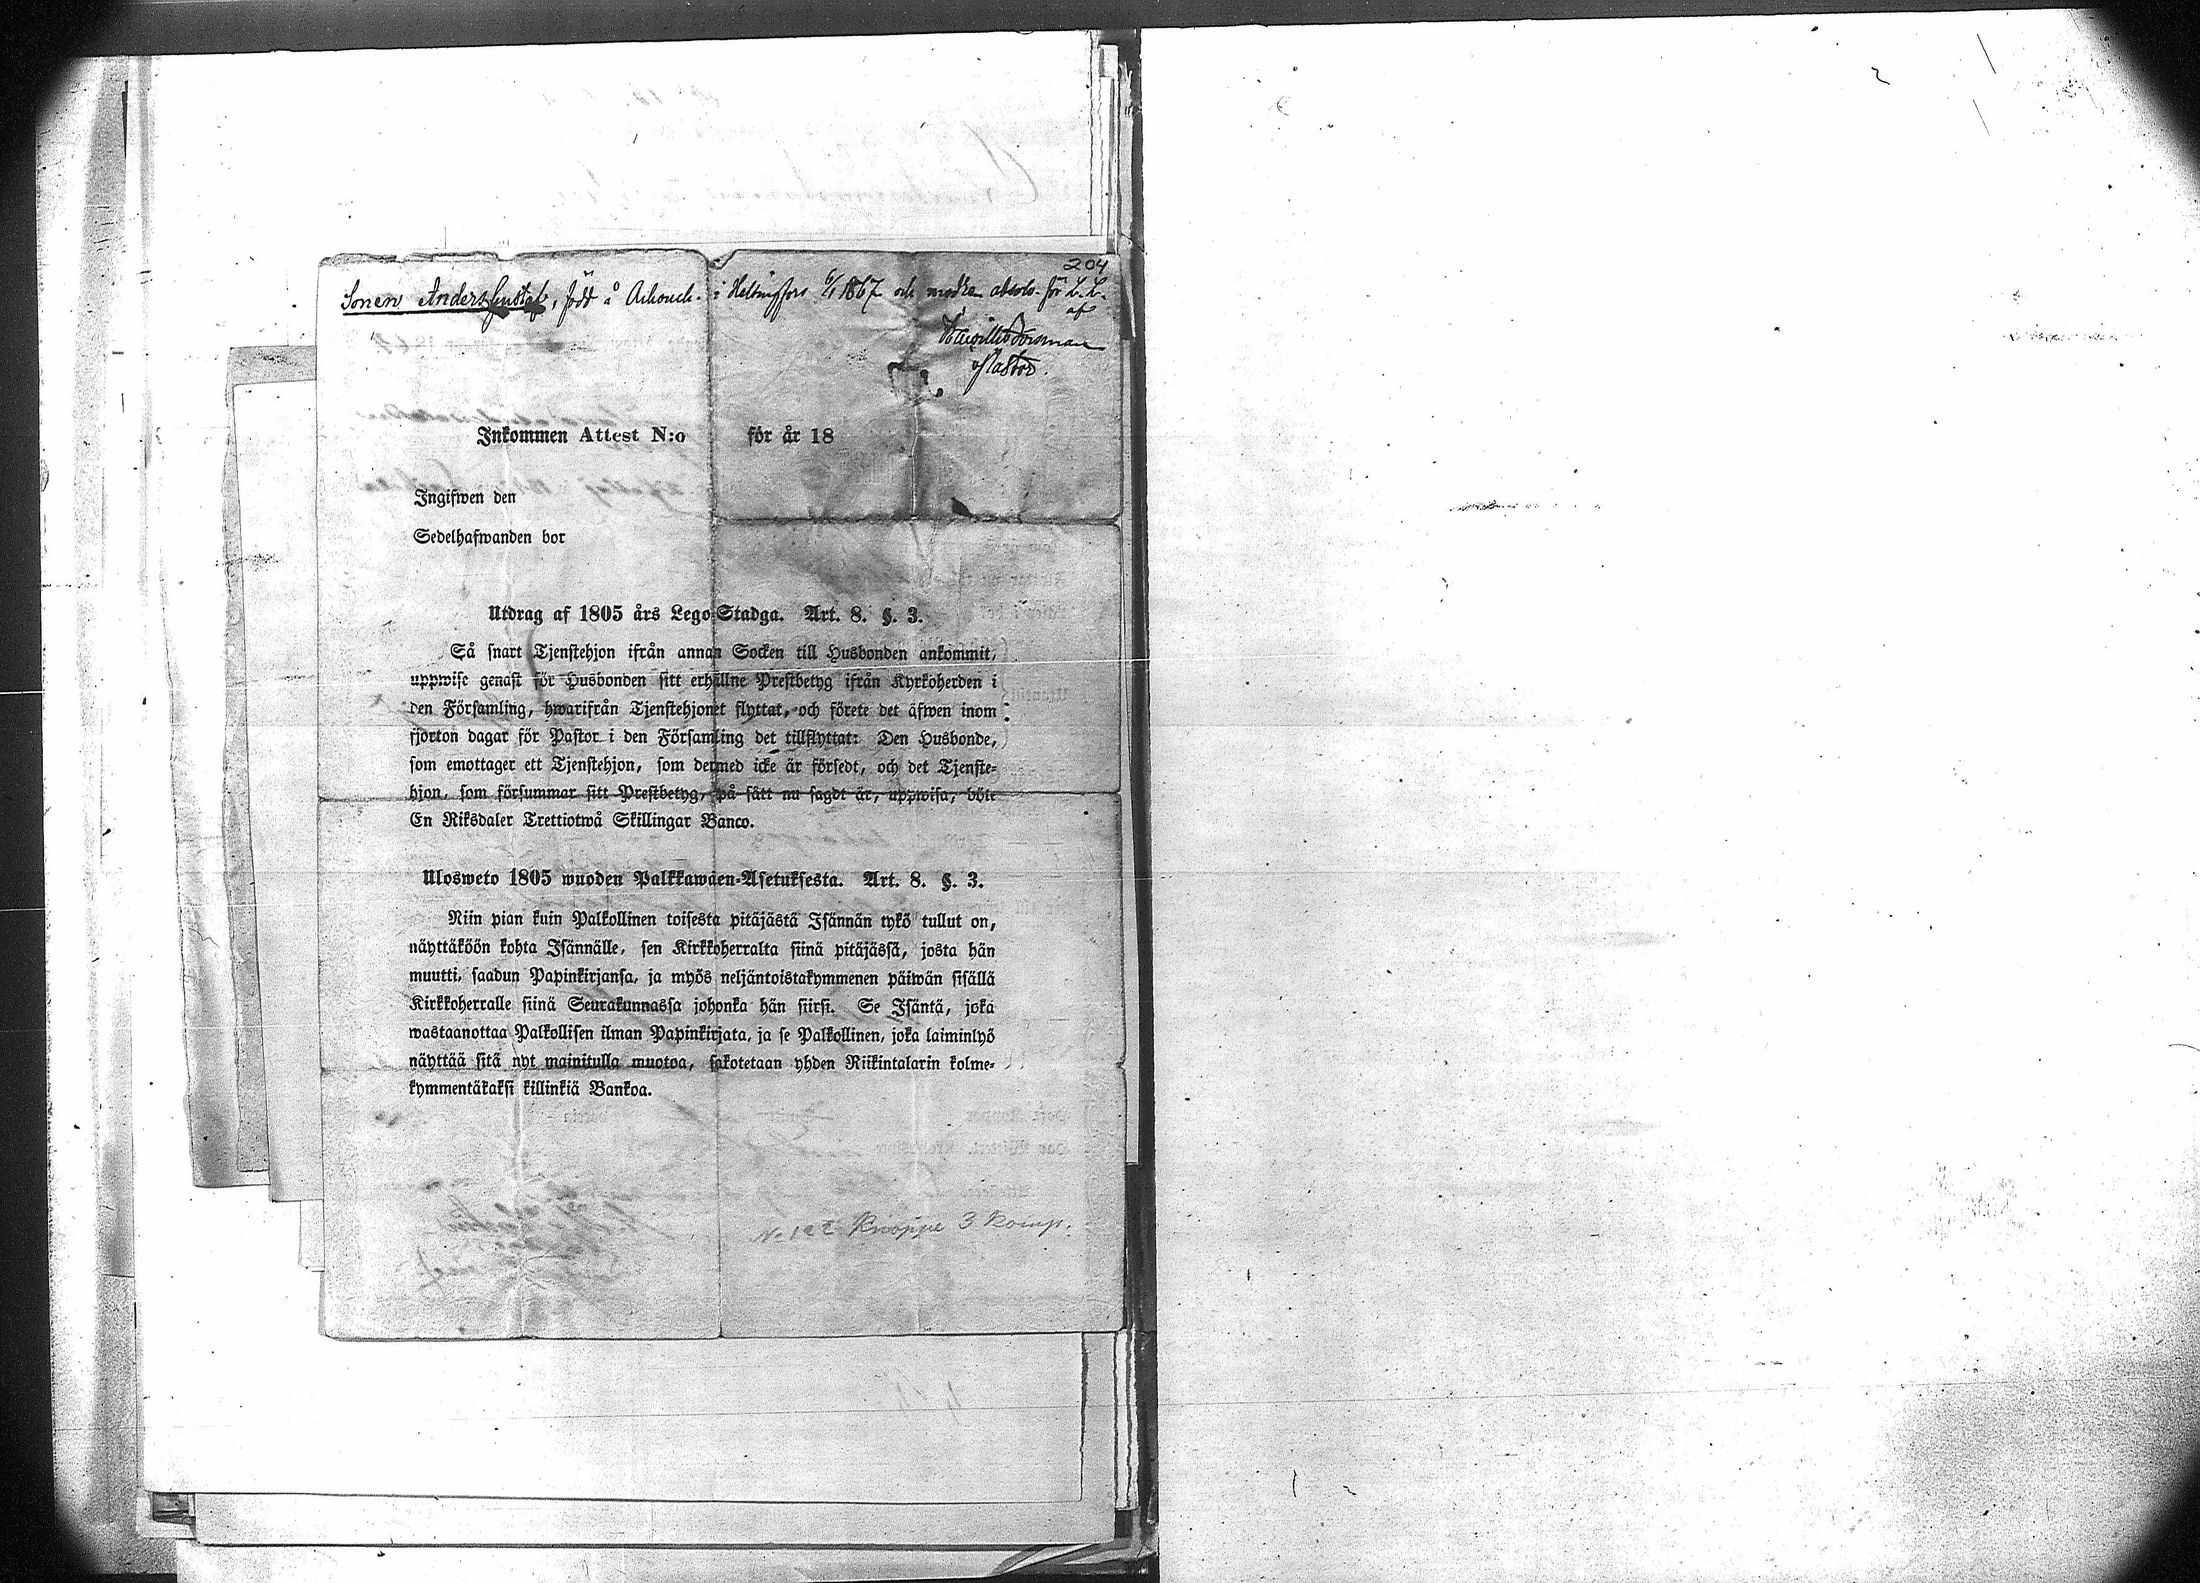 204
Sonen Anders Gustaf, född å Ackouch. i Helsingfors 6/1 1867 och modren absolv. för L. L.
af
Pastor.
Inkommen Attest N:o för år 18
Ingifwen den
Sedelhafwanden bor
Utdrag af 1805 års Lego-Stadga. Art. 8. §. 3.
Så snart Tjenstehjon ifrån annan Socken till Husbonden ankommit,
uppwise genast för Husbonden sitt erhållne Prestbetyg ifrån Kyrkoherden i
den Församling, hwarifrån Tjenstehjonet flyttat, och förete det äfwen inom
fjorton dagar för Pastor i den Församling det tillflyttat: Den Husbonde,
som emottager ett Tjenstehjon, som dermed icke är försedt, och det Tjenste-
hjon, som försummar sitt Prestbetyg, på sätt nu sagdt är, uppwisa, böte
En Riksdaler Trettiotwå Skillingar Banco.
Ulosweto 1805 wuoden Palkkawäen-Asetuksesta. Art. 8. §. 3.
Niin pian kuin Palkollinen toisesta pitäjästä Isännän tykö tullut on,
näyttäköön kohta Isännälle, sen Kirkkoherralta siinä pitäjässä, josta hän
muutti, saadun Papinkirjansa, ja myös neljäntoistakymmenen päiwän sisällä
Kirkkoherralle siinä Seurakunnassa johonka hän siirsi. Se Isäntä, joka
wastaanottaa Palkollisen ilman Papinkirjata, ja se Palkollinen, joka laiminlyö
näyttää sitä nyt mainitulla muotoa, sakotetaan yhden Riikintalarin kolme-
kymmentäkaksi killinkiä Bankoa.
No 122 Knoppe 3 Komp.